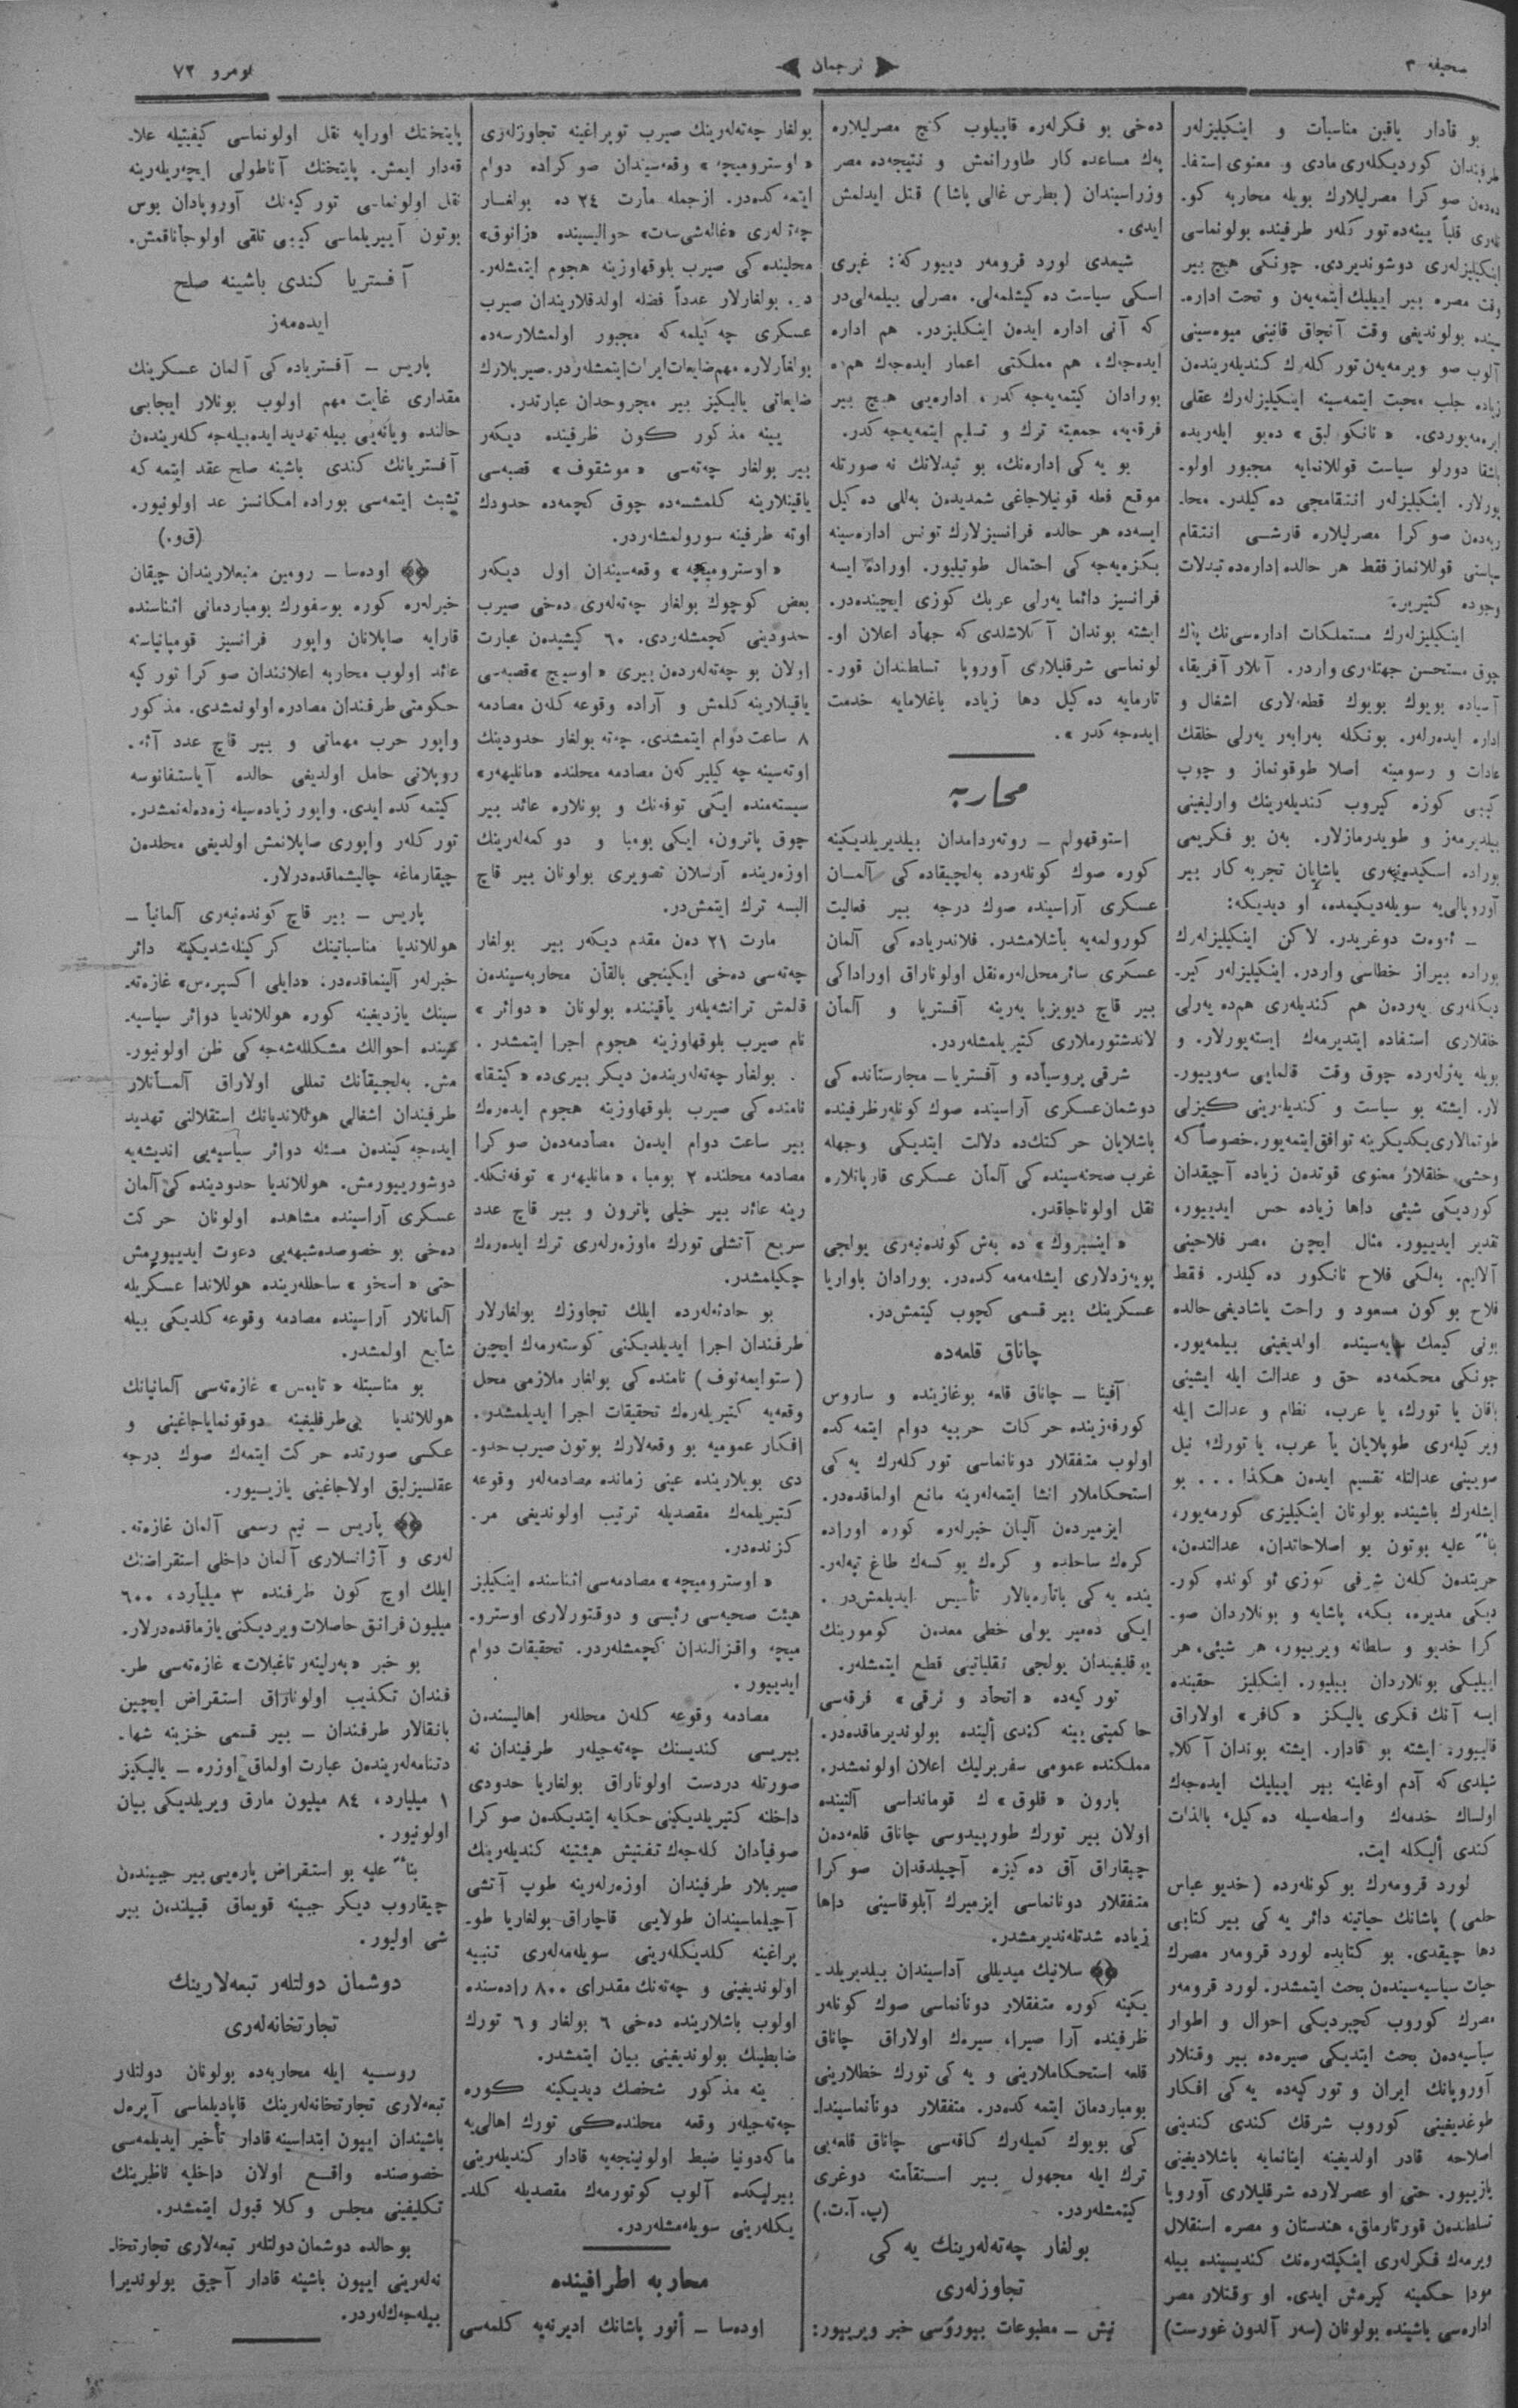 صحیفه ۳
ترجمان
نومرو ۷۳
بو قأدار یاقین مناسبأت و اینکیلیزلەر
طرفیندان کوردیکلەری مادی و معنوی استفا-
دەدەن صوکرا مصرلیلارك بویله محاربه کو-
نلەری قلباً یینەدە تورکلەر طرفیندە بولونماسی
اینکیلیزلەری دوشوندیردی. چونکی هیچ بیر
وقت مصرە بیر اییلیك ایتمەیەن و تحت ادارە-
سیندە بولوندیغی وقت آنجاق قانینی میوەسینی
آلوب صو ویرمەیەن تورکلەرك کندیلەریندەن
زیادە جلب محبت ایتمەسینه اینکیلیزلەرك عقلی
ایرەمەیوردی. «نانکورلیق» دەیو ایلەریدە
باشقا دورلو سیاست قوللانمایه مجبور اولو-
یورلار. اینکیلیزلەر انتقامجی دەکیلدر. محا-
ربەدەن صوکرا مصرلیلارە قارشی انتقام
سیاستی قوللانماز فقط هر حالدە ادارەدە تبدلات
وجودە کتیریر.
اینکیلیزلەرك مستملکات ادارەسی‌نك پك
چوق مستحسن جهتلەری واردر. آنلار آفریقا،
آسیادە بویوك بویوك قطعەلاری اشغال و
ادارە ایدەرلەر. بونکله بەرابەر یەرلی خلقك
عادات و رسومینه اصلا طوقونماز و چوپ
کیبی کوزە کیروب کندیلەرینك وارلیغینی
بیلدیرمەز و طویدرمازلار. بەن بو فکریمی
بورادە اسکیدەنبەری یاشایان تجربه‌کار بیر
آوروپالی‌یه سویلەدیکیمدە، او دیدیکه:
ـ ئەوەت دوغریدر. لاکن اینکیلیزلەرك
بورادە بیراز خطاسی واردر. اینکیلیزلەر کیر-
دیکلەری یەردەن هم کندیلەری همدە یەرلی
خلقلاری استفادە ایتدیرمەك ایستەیورلار. و
بویله یەرلەردە چوق وقت قالمایی سەوییور-
لار. ایشته بو سیاست و کندیلەرینی کیزلی
طوتمالاری یکدیکرینه توافق ایتمەیور. خصوصاً که
وحشی خلقلار معنوی قوتدەن زیادە آچیقدان
کوردیکی شیئی داها زیادە حس ایدییور،
تقدیر ایدییور. مثال ایچن مصر فلاحینی
آلالیم. بەلکی فلاح نانکور دەکیلدر. فقط
فلاح بوکون مسعود و راحت یاشادیغی حالدە
بونی کیمك سایەسیندە اولدیغینی بیلمەیور.
چونکی محکمەدە حق و عدالت ایله ایشینی
باقان یا تورك، یا عرب، نظام و عدالت ایله
ویرکیلەری طوپلایان یا عرب، یا تورك، نیل
صویینی عدالتله تقسیم ایدەن هکذا... بو
ایشلەرك باشیندە بولونان اینکیلیزی کورمەیور،
بناءً علیه بوتون بو اصلاحاتدان، عدالتدەن،
حریتدەن کلەن شرفی کوزی ئوکوندە کور-
دیکی مدیرە، بکه، پاشایه و بونلاردان صو-
کرا خدیو و سلطانه ویرییور، هر شیئی، هر
اییلیکی بونلاردان بیلیور. اینکیلیز حقیندە
ایسه آنك فکری یالیکز «کافر» اولاراق
قالییور. ایشته بو قادار. ایشته بوندان آکلا-
شیلدی که آدم اوغلینه بیر اییلیك ایدەجەك
اولساك خدمەك واسطەسیله دەکیل، بالذات
کندی ألیکله ایت.
لورد قرومەرك بو کونلەردە (خدیو عباس
حلمی) پاشانك حیاتینه دائر یەکی بیر کتابی
دها چیقدی. بو کتابدە لورد قرومەر مصرك
حیات سیاسیەسیندەن بحث ایتمشدر. لورد قرومەر
مصرك کوروب کچیردیکی احوال و اطوار
سیأسیەدەن بحث ایتدیکی صیرەدە بیر وقتلار
آوروپانك ایران و تورکیەدە یەکی افکار
طوغدیغینی کوروب شرقك کندی کندینی
اصلاحه قادر اولدیغینه اینانمایه باشلادیغینی
یازییور. حتی او عصرلاردە شرقلیلاری آوروپا
تسلطندەن قورتارماق، هندستان و مصرە استقلال
ویرمەك فکرلەری اینکیلتەرەنك کندیسیندە بیله
مودا حکمینه کیرمش ایدی. او وقتلار مصر
ادارەسی باشیندە بولونان (سەر آلدون غورست)
دەخی بو فکرلەرە قاپیلوب کنج مصرلیلارە
پەك مساعدەکار طاورانمش و نتیجەدە مصر
وزراسیندان (بطرس غالی پاشا) قتل ایدلمش
ایدی.
شیمدی لورد قرومەر دییورکه: غیری
اسکی سیاست دە کیتملەلی. مصرلی بیلمەلی‌در
که آنی ادارە ایدەن اینکلیزدر. هم ادارە
ایدەجەك، هم مملکتی اعمار ایدەجەك همدە
بورادان کیتمەیەجەکدر، ادارەیی هیچ بیر
فرقەیه، جمعیته ترك و تسلیم ایتمەیەجەکدر.
بو یەکی ادارەنك، بو تبدلاتك نه صورتله
موقع فعله قونیلاجاغی شمدیدەن بەللی دەکیل
ایسەدە هر حالدە فرانسیزلارك تونس ادارەسینه
بکزەیەجەکی احتمال طوتیلیور. اورادە ایسه
فرانسیز دائما یەرلی عربك کوزی ایچیندەدر.
ایشته بوندان آکلاشلدی که جهاد اعلان او-
لونماسی شرقلیلاری آوروپا تسلطندان قور-
تارمایه دەکیل دها زیادە باغلامایه خدمت
ایدەجەکدر».
محاربه
استوقهولم ـ روتەردامدان بیلدیریلدیکینه
کورە صوك کونلەردە بەلجیقادەکی آلمان
عسکری آراسیندە صوك درجه بیر فعالیت
کورولمەیه باشلامشدر. فلاندریادەکی آلمان
عسکری سائر محللەرە نقل اولوناراق اوراداکی
بیر قاچ دیویزیا یەرینه آفستریا و آلمان
لاندشتورملاری کتیریلمشلەردر.
شرقی پروسیأدە و آفستریا ـ مجارستأندەکی
دوشمان عسکری آراسیندە صوك کونلەر ظرفیندە
باشلایان حرکتك‌دە دلالت ایتدیکی وجهله
غرب صحنەسیندەکی آلمان عسکری قارپاتلارە
نقل اولوناجاقدر.
«اینسبروك» دە بەش کوندەنبەری یولجی
پویەزدلاری ایشلەمەمەکدەدر. بورادان باواریا
عسکرینك بیر قسمی کچوب کیتمش‌در.
چاناق قلعەدە
آفینا ـ چاناق قلعه بوغازیندە و ساروس
کورفەزیندە حرکات حربیه دوام ایتمەکدە
اولوب متفقلار دونانماسی تورکلەرك یەکی
استحکاملار انشا ایتمەلەرینه مانع اولماقدەدر.
ازمیردەن آلینان خبرلەرە کورە اورادە
کرەك ساحلدە و کرەك یوکسەك طاغ تپەلەر-
یندە یەکی باتارەیالار تأسیس ایدیلمش‌در.
ایکی دەمیر یولی خطی معدەن کومورینك
یوقلیغیندان یولجی نقلیاتینی قطع ایتمشلەر.
تورکیەدە «اتحاد و ترقی» فرقەسی
حاکمیتی یینه کندی ألیندە بولوندیرماقدەدر.
مملکتدە عمومی سفربرلیك اعلان اولونمشدر.
بارون «قلوق»ك قومانداسی آلتیندە
اولان بیر تورك طورپیدوسی چاناق قلعەدەن
چیقاراق آق دەکیزە آچیلدقدان صوکرا
متفقلار دونانماسی ازمیرك آبلوقاسینی داها
زیادە شدتلەندیرمشدر.
سلانیك میدیللی آداسیندان بیلدیریلد-
یکینه کورە متفقلار دونانماسی صوك کونلەر
ظرفیندە آرا صیرا، سیرەك اولاراق چاناق
قلعه استحکاملارینی و یەکی تورك خطلارینی
بومباردمان ایتمەکدەدر. متفقلار دونانماسیندا-
کی بویوك کمیلەرك کافەسی چاناق قلعەیی
ترك ایله مجهول بیر استقأمته دوغری
کیتمشلەردر. (پ.آ.ت.)
بولغار چەتەلەرینك یەکی
تجاوزلەری
نیش ـ مطبوعات بیوروسی خبر ویرییور:
بولغار چەتەلەرینك صیرب توپراغینه تجاوزلەری
«اوسترومیچه» وقعەسیندان صوکرادە دوام
ایتمەکدەدر. ازجمله مارت ۲٤ دە بولغار
چەتەلەری «غالەشی‌سەت» حوالیسیندە «زانوق»
محلیندەکی صیرب بلوقهاوزینه هجوم ایتمشلەر-
در. بولغارلار عدداً فضله اولدقلاریندان صیرب
عسکری چەکیلمەکه مجبور اولمشلارسەدە
بولغارلارە مهم ضایعات ایرات ایتمشلەردر. صیربلارك
ضایعاتی یالیکیز بیر مجروحدان عبارتدر.
یینه مذکور کون ظرفیندە دیکەر
بیر بولغار چەتەسی «موشقوف» قصبەسی
یاقینلارینه کلمشسەدە چوق کچمەدە حدودك
اوته طرفینه سورولمشلەردر.
«اوسترومیچه» وقعەسیندان اول دیکەر
بعض کوچوك بولغار چەتەلەری دەخی صیرب
حدودینی کچمشلەردی. ٦۰ کیشیدەن عبارت
اولان بو چەتەلەردەن بیری «اوسیچ» قصبەسی
یاقینلارینه کلمش و آرادە وقوعه کلەن مصادمه
۸ ساعت دوام ایتمشدی. چەته بولغار حدودینك
اوتەسینه چەکیلیرکەن مصادمه محلندە «مانلیهەر»
سیستەمندە ایکی توفەنك و بونلارە عائد بیر
چوق پاترون، ایکی بومبا و دوکمەلەرینك
اوزەریندە آرسلان تصویری بولونان بیر قاچ
البسه ترك ایتمش‌در.
مارت ۲۱ دەن مقدم دیکەر بیر بولغار
چەتەسی دەخی ایکینجی بالقأن محاربەسیندەن
قالمش ترانشەیلەر یأقینندە بولونان «دوائر»
نام صیرب بلوقهاوزینه هجوم اجرا ایتمشدر.
بولغار چەتەلەریندەن دیکر بیری‌دە «کیتقا»
نامندەکی صیرب بلوقهاوزینه هجوم ایدەرەك
بیر ساعت دوام ایدەن مصأدمەدەن صوکرا
مصادمه محلندە ۲ بومبا، «مانلیهەر» توفەنکلە-
رینه عائد بیر خیلی پاترون و بیر قاچ عدد
سریع آتشلی تورك ماوزەرلەری ترك ایدەرەك
چکیلمشدر.
بو حادثەلەردە ایلك تجاوزك بولغارلار
طرفندان اجرا ایدیلدیکنی کوستەرمەك ایچین
(ستوایمەنوف) نامندەکی بولغار ملازمی محل
وقعەیه کتیریلەرەك تحقیقات اجرا ایدیلمشدر.
افکار عمومیه بو وقعەلارك بوتون صیرب حدو-
دی بویلاریندە عینی زماندە مصادمەلەر وقوعه
کتیریلمەك مقصدیله ترتیب اولوندیغی مر-
کزندەدر.
«اوسترومیچه» مصادمەسی اثناسندە اینکیلیز
هیئت صحیەسی رئیسی و دوقتورلاری اوسترو-
میچه واقزالندان کچمشلەردر. تحقیقات دوام
ایدییور.
مصادمه وقوعه کلەن محللەر اهالیسندەن
بیریسی کندیسنك چەتەجیلەر طرفیندان نه
صورتله دردست اولوناراق بولغاریا حدودی
داخلنه کتیریلدیکینی حکایه ایتدیکدەن صوکرا
صوفیأدان کلەجەك تفتیش هیئتینه کندیلەرینك
صیربلار طرفیندان اوزەرلەرینه طوپ آتشی
آچیلماسیندان طولایی قاچاراق بولغاریا طو-
پراغینه کلدیکلەرینی سویلەمەلەری تنبیه
اولوندیغینی و چەتەنك مقدرای ۸۰۰ رادەسندە
اولوب باشلاریندە دەخی ٦ بولغار و ٦ تورك
ضابطینك بولوندیغینی بیان ایتمشدر.
ینه مذکور شخصك دیدیکینه کورە
چەتەجیلەر وقعه محلندەکی تورك اهالی‌یه
ماکەدونیا ضبط اولونینجەیه قادار کندیلەرینی
بیرلیکدە آلوب کوتورمەك مقصدیله کلد-
یکلەرینی سویلەمشلەردر.
محاربه اطرافیندە
اودەسا ـ أنور پاشانك ادیرنەیه کلمەسی
پایتختك اورایه نقل اولونماسی کیفیتیله علا-
قەدار ایمش. پایتختك آناطولی ایچەریلەرینه
نقل اولونماسی تورکیەنك آوروپادان بوس
بوتون آییریلماسی کیبی تلقی اولوجأناقمش.
آفستریا کندی باشینه صلح
ایدەمەز
پاریس ـ آفستریادەکی آلمان عسکرینك
مقداری غایت مهم اولوب بونلار ایجابی
حالندە ویانەیی بیله تهدید ایدەبیلەجەکلەریندەن
آفستریانك کندی باشینه صلح عقد ایتمەکه
تشبث ایتمەسی بورادە امکانسز عد اولونیور.
(ق.و.)
اودەسا ـ رومین منبعلاریندان چیقان
خبرلەرە کورە بوسفورك بومباردمانی اثناسندە
قارایه صاپلانان واپور فرانسیز قومپانیاسنه
عائد اولوب محاربه اعلانندان صوکرا تورکیه
حکومتی طرفندان مصادرە اولونمشدی. مذکور
واپور حرب مهماتی و بیر قاچ عدد آئه-
روپلانی حامل اولدیغی حالدە آیاستفانوسه
کیتمەکدە ایدی. واپور زیادەسیله زەدەلەنمشدر.
تورکلەر واپوری صاپلانمش اولدیغی محلدەن
چیقارماغه چالیشماقدەدرلار.
پاریس ـ بیر قاچ کوندەنبەری آلمانیأ ـ
هوللاندیا مناسباتینك کرکینلەشدیکینه دائر
خبرلەر آلینماقدەدر. «دایلی اکسپرەس» غازەتە-
سینك یازدیغینه کورە هوللاندیا دوائر سیاسیە-
سیندە احوالك مشکللەشەجەکی ظن اولونیور-
مش. بەلجیقأنك تمللی اولاراق آلمانلار
طرفیندان اشغالی هوللاندیانك استقلالنی تهدید
ایدەجەکیندەن مسئله دوائر سیاسیەیی اندیشەیه
دوشورییورمش. هوللاندیا حدودیندەکی آلمان
عسکری آراسیندە مشاهدە اولونان حرکت
دەخی بو خصوصدە شبهەیی دعوت ایدییورمش
حتی «اسخو» ساحللەریندە هوللاندا عسکریله
آلمانلار آراسیندە مصادمه وقوعه کلدیکی بیله
شأیع اولمشدر.
بو مناسبتله «تایمس» غازەتەسی آلمانیانك
هوللاندیا بی‌طرفلیغینه دوقونمایاجاغینی و
عکسی صورتدە حرکت ایتمەك صوك درجه
عقلسیزلیق اولاجاغینی یازییور.
پأریس ـ نیم رسمی آلمان غازەتە-
لەری و آژانسلاری آلمان داخلی استقراضنك
ایلك اوچ کون ظرفندە ۳ میلیارد، ٦۰۰
میلیون فرانق حاصلات ویردیکنی یازماقدەدرلار.
بو خبر «بەرلینەر تاغبلات» غازەتەسی طر-
فندان تکذیب اولوناراق استقراض ایچین
بانقالار طرفندان ـ بیر قسمی خزینه شها-
دتنامەلەریندەن عبارت اولماق اوزرە ـ یالیکیز
۱ میلیارد، ۸٤ میلیون مارق ویریلدیکی بیان
اولونیور.
بناءً علیه بو استقراض پارەیی بیر جیبندەن
چیقاروب دیکر جیبینه قویماق قبیلندەن بیر
شی اولیور.
دوشمان دولتلەر تبعەلارینك
تجارتخانەلەری
روسیه ایله محاربەدە بولونان دولتلەر
تبعەلاری تجارتخانەلەرینك قاپادیلماسی آپرەل
باشیندان اییون ابتداسینه قادار تأخیر ایدیلمەسی
خصوصندە واقع اولان داخلیه ناظرینك
تکلیفینی مجلس وکلا قبول ایتمشدر.
بو حالدە دوشمان دولتلەر تبعەلاری تجارتخا-
نەلەرینی اییون باشینه قادار آچیق بولوندیرا
بیلەجەك‌لەردر.